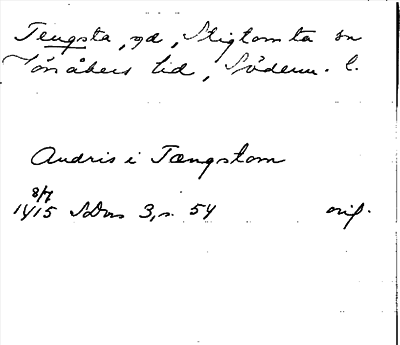 Tengsta, gd, Stigtomta sn
Rönåkers hd, Söderm. l.
Andris i Tængstom
8/7
1415 SDns 3, s. 54 orig.